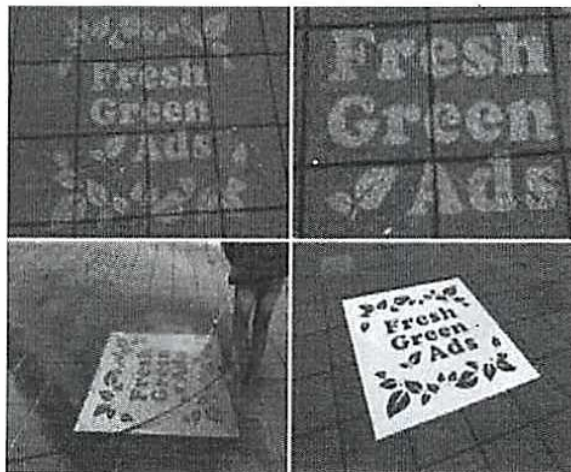 Fresh
Green
Ads
Fresh
Green
Ads
Fresh
Green
Ads
Fresh
Green
Ads